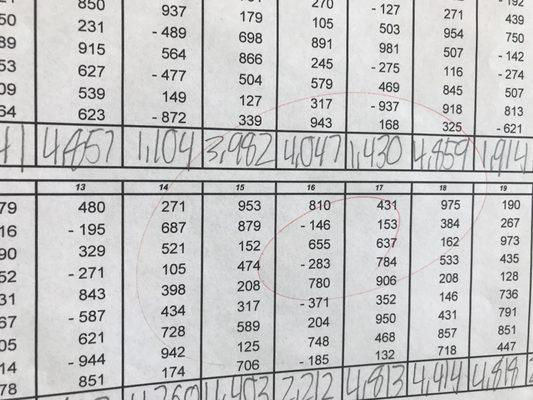 - 192
270 - 127 271 439
850 937 179 105 503 954 750
50 231 - 489 698 891 981 507 - 142
89 915 564 866 245 - 275 116 - 274
53 627 - 477 504 579 469 845 507
09 539 149 127 317 - 937 918 813
64 623 - 872 339 943 168 325 - 621
41 4,857 1,104 3,982 4,047 1,430 4,859 1,914
13 14 15 16 17 18 19
79 480 271 953 810 431 975 190
16 - 195 687 879 - 146 153 384 267
90 329 521 152 655 637 162 973
52 - 271 105 474 - 283 784 533 435
31 843 398 208 780 906 208 128
67 - 587 434 317 - 371 352 146 736
05 621 728 589 204 950 431 791
14 - 944 942 125 748 468 857 851
78 851 174 706 - 185 132 718 447
4,260 4,403 2,212 4,813 4,414 4,818